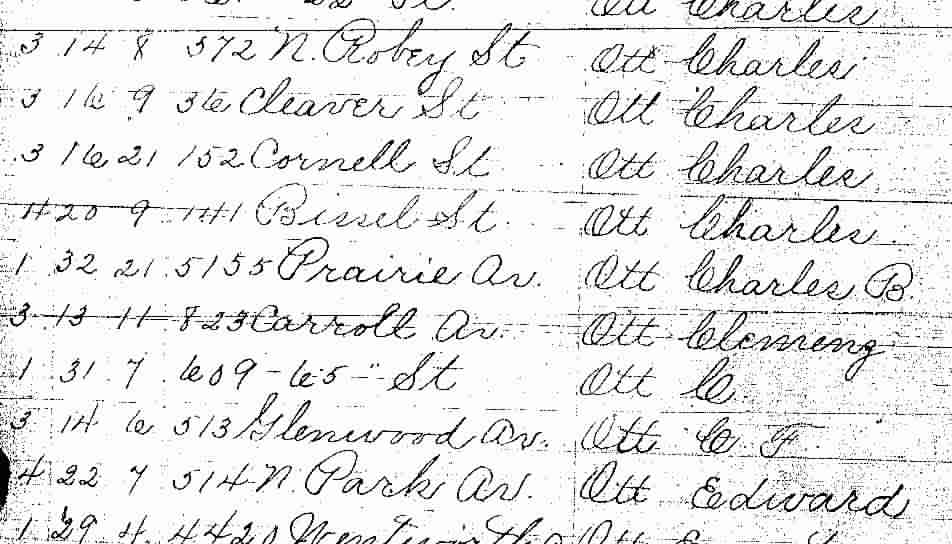 St. Ott Charles
3 14 8 572 N. Robey St Ott Charles
3 16 9 36 Cleaver St Ott Charles
3 16 21 152 Cornell St Ott Charles
4 20 9 141 Bissel St Ott Charles
1 32 21 5155 Prairie Av. Ott Charles B.
3 13 11 823 Carroll Av. Ott Clemeng
1 31 7 609-65" St Ott C.
3 14 6 513 Glenwood Av. Ott C F
4 22 7 514 N. Park Av. Ott Edward
1 29 4 4420 Wentworth Ott